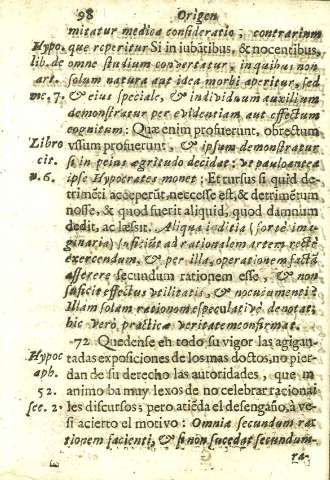 98 Origen
mitatur medica consideratio; contrarium
Hypo. que reperitur Si in iubãtibus, & nocentibus,
lib. de omne studium convertatur, in quibus non
art. solum natura aut idea morbi aperitur, sed
me. 7. & eius speciale, & individuum auxilium
demonstratur per evidentiam aut effectum
cognitum: Quæ enim profuerunt, ob rectum
Libro vsum profuerunt, & ipsum demonstratur
cit. si in peius ægritudo decidat: vt pauloantea
n. 6. ipse Hypocrates monet; Et rursus si quid de-
trimẽti acceperũt, neccesse est, & detrimẽtum
nosse, & quod fuerit aliquid, quod damnum
dedit, ac læsit. Aliqua ideitia (forte ima-
ginaria) suficiũt ad rationalem artem recte
exercendum, & per illa, operationem factã
asserere secundum rationem esse, & non
suficit effectus vtilitatis, & nocumenti?
Illam solam rationem especulative denotat,
hic verò practica veritatem confirmat.
-72 Quedense en todo su vigor las agigan-
Hypoc tadas exposiciones de los mas doctos, no pier-
aph. dan de su derecho las autoridades, que mi
52. animo ba muy lexos de no celebrar racional
sec. 2. les discursos; pero atiẽda el desengaño, à ve-
si acierto el motivo: Omnia secundum ra-
tionem facienti, & si non sucedat secundum-
ra-